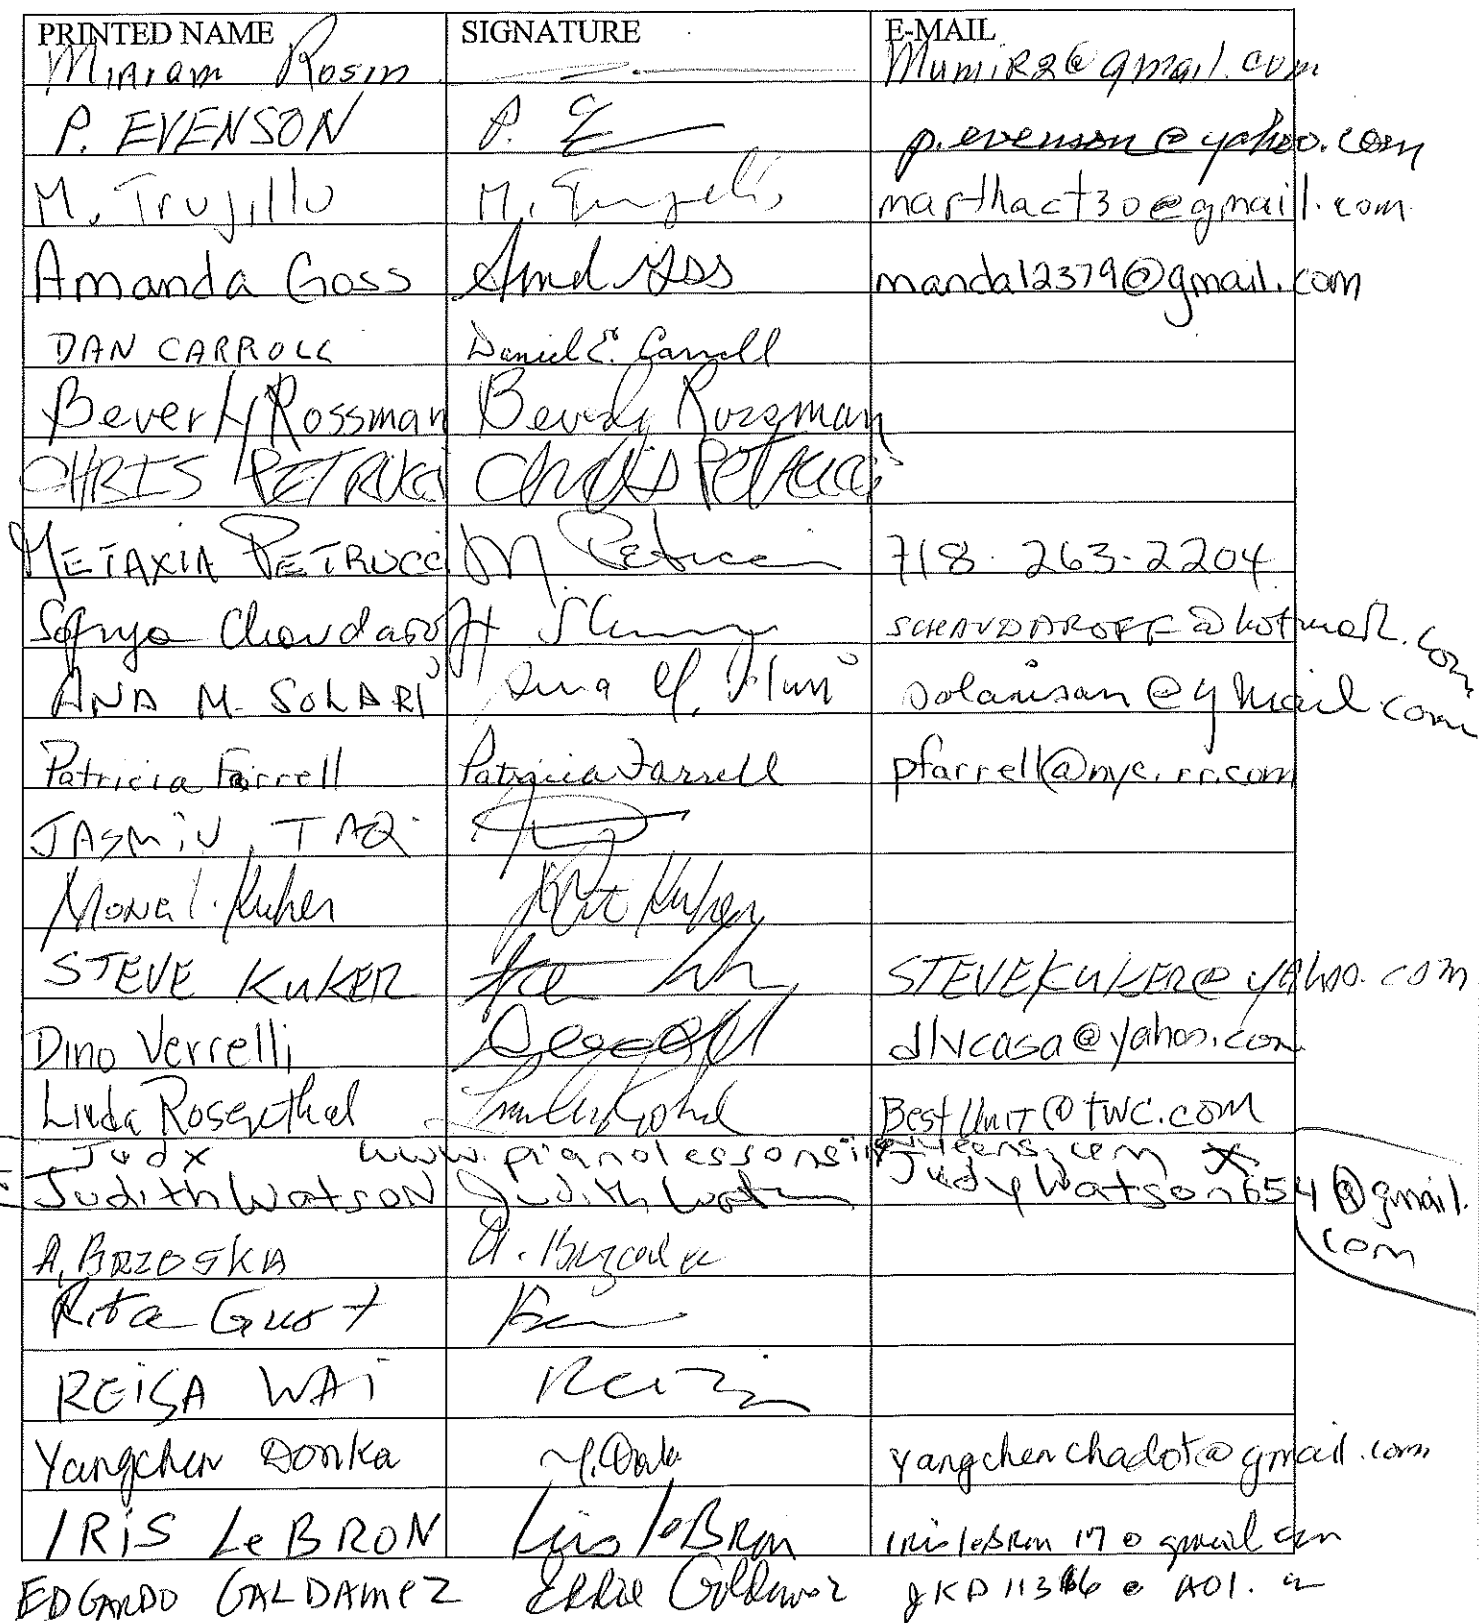 PRINTED NAME SIGNATURE E-MAIL
Miriam Rosin Mumir2@gmail.com
P. EVENSON P. p.evenson@yahoo.com
M. Trujillo M. marthact30@gmail.com
Amanda Goss manda12379@gmail.com
DAN CARROLL Daniel E. Carroll
Beverly Rossman Beverly Rossman
CHRIS PETRUCCI CHRIS PETRUCCI
METAXIA PETRUCCI M. Petrucci 718-263-2204
Chavdaroff SCHAVDAROFF@hotmail.com
ANA M. SOLARI Ana M. solarisan@ymail.com
Patricia Farrell Patricia Farrell pfarrell@nyc.rr.com
JASMiN TAQ
Mona l. Kuker Kuker
STEVE KUKER STEVEKUKER@yahoo.com
Dino Verrelli dlvcasa@yahoo.com
Linda Rosenthal BestUnit@twc.com
Judy www.pianolessonsinqueens.com
Judith Watson Judith Watson JudyWatson654@gmail.
com
A. BRZOSKA A. Brzoska
Rita
REiSA WAi
Yangchen Donka Y. yangchenchadot@gmail.com
IRiS LeBRON Iris leBron irislebron17@gmail.com
EDGARDO GALDAMEZ Eddie Galdamez